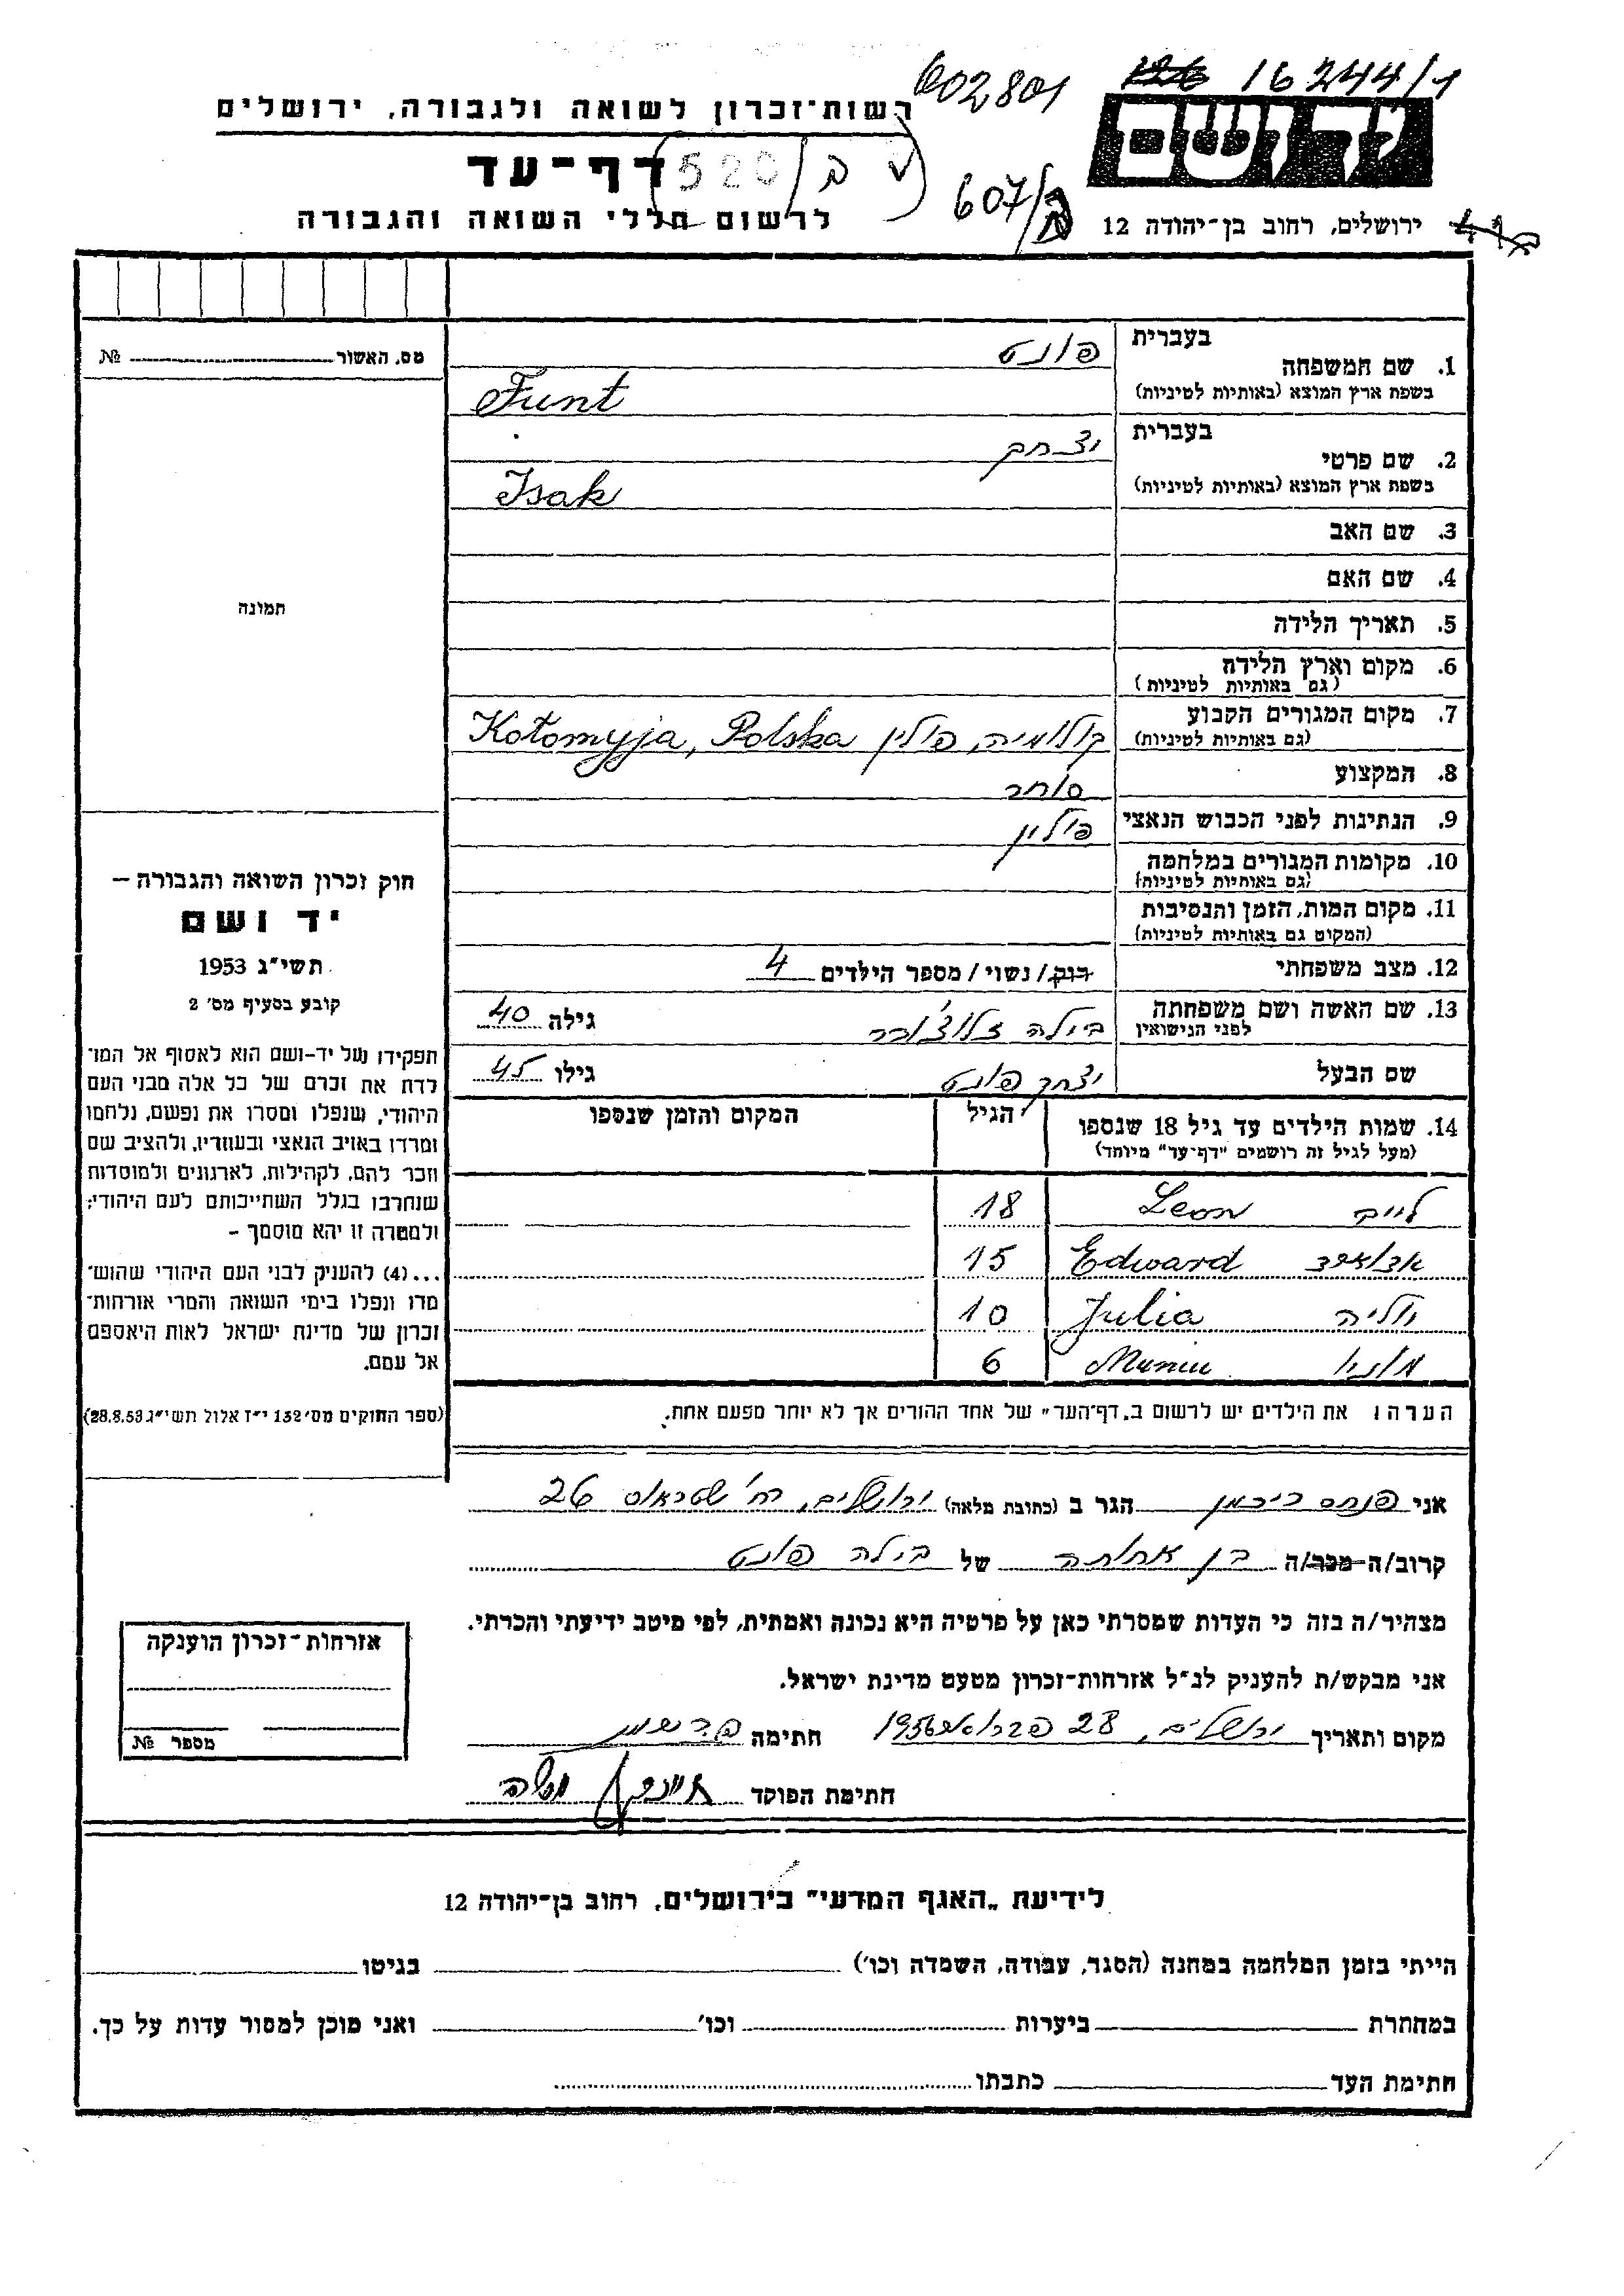 602801
16244/1
רשות־זכרון לשואה ולגבורה, ירושלים
יד ושם
דף־עד
520
607/ב
לרשום חללי השואה והגבורה
ירושלים, רחוב בן־יהודה 12
מס. האשור № 
תמונה
1. שם המשפחה בעברית פונט
בשפת ארץ המוצא (באותיות לטיניות) Funt
2. שם פרטי בעברית יצחק
בשפת ארץ המוצא (באותיות לטיניות) Isak
3. שם האב
4. שם האם
5. תאריך הלידה
6. מקום וארץ הלידה
(גם באותיות לטיניות)
7. מקום המגורים הקבוע קולומיה, פולין Kołomyja, Polska
(גם באותיות לטיניות)
8. המקצוע סוחר
9. הנתינות לפני הכבוש הנאצי פולין
10. מקומות המגורים במלחמה
(גם באותיות לטיניות)
11. מקום המות, הזמן והנסיבות
(המקום גם באותיות לטיניות)
12. מצב משפחתי רוק/נשוי/מספר הילדים 4
13. שם האשה ושם משפחתה לפני הנישואין בילה גילה 40
שם הבעל יצחק פונט גילו 45
14. שמות הילדים עד גיל 18 שנספו הגיל המקום והזמן שנספו
(מעל לגיל זה רושמים "דף־עד" מיוחד)
לייב Leon 18
אדוארד Edward 15
יוליה Julia 10
מוניו Muniu 6
הערה: את הילדים יש לרשום ב„דף־העד" של אחד ההורים אך לא יותר מפעם אחת.
חוק זכרון השואה והגבורה –
יד ושם
תשי"ג 1953
קובע בסעיף מס' 2
תפקידו של יד-ושם הוא לאסוף אל המו־
לדת את זכרם של כל אלה מבני העם
היהודי, שנפלו ומסרו את נפשם, נלחמו
ומרדו באויב הנאצי ובעוזריו, ולהציב שם
וזכר להם, לקהילות, לארגונים ולמוסדות
שנחרבו בגלל השתייכותם לעם היהודי;
ולמטרה זו יהא מוסמך –
...(4) להעניק לבני העם היהודי שהוש־
מדו ונפלו בימי השואה והמרי אזרחות־
זכרון של מדינת ישראל לאות היאספם
אל עמם.
(ספר החוקים מס' 132 י"ז אלול תשי"ג 28.8.53)
אני פנחס הגר ב (כתובת מלאה) ירושלים, רח' שטראוס 26
קרוב/ה מכר/ה בן אחותה של בילה פונט
מצהיר/ה בזה כי העדות שמסרתי כאן על פרטיה היא נכונה ואמתית, לפי מיטב ידיעתי והכרתי.
אני מבקש/ת להעניק לנ"ל אזרחות־זכרון מטעם מדינת ישראל.
מקום ותאריך ירושלים, 28 פברואר 1956 חתימה
חתימת הפוקד
אזרחות־זכרון הוענקה
מספר №
לידיעת „האגף המדעי" בירושלים, רחוב בן־יהודה 12
הייתי בזמן המלחמה במחנה (הסגר, עבודה, השמדה וכו') בגיטו
במחתרת ביערות וכו' ואני מוכן למסור עדות על כך.
חתימת העד כתבתו